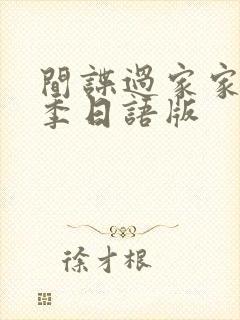 間諜過家家
季日語版
徐才根